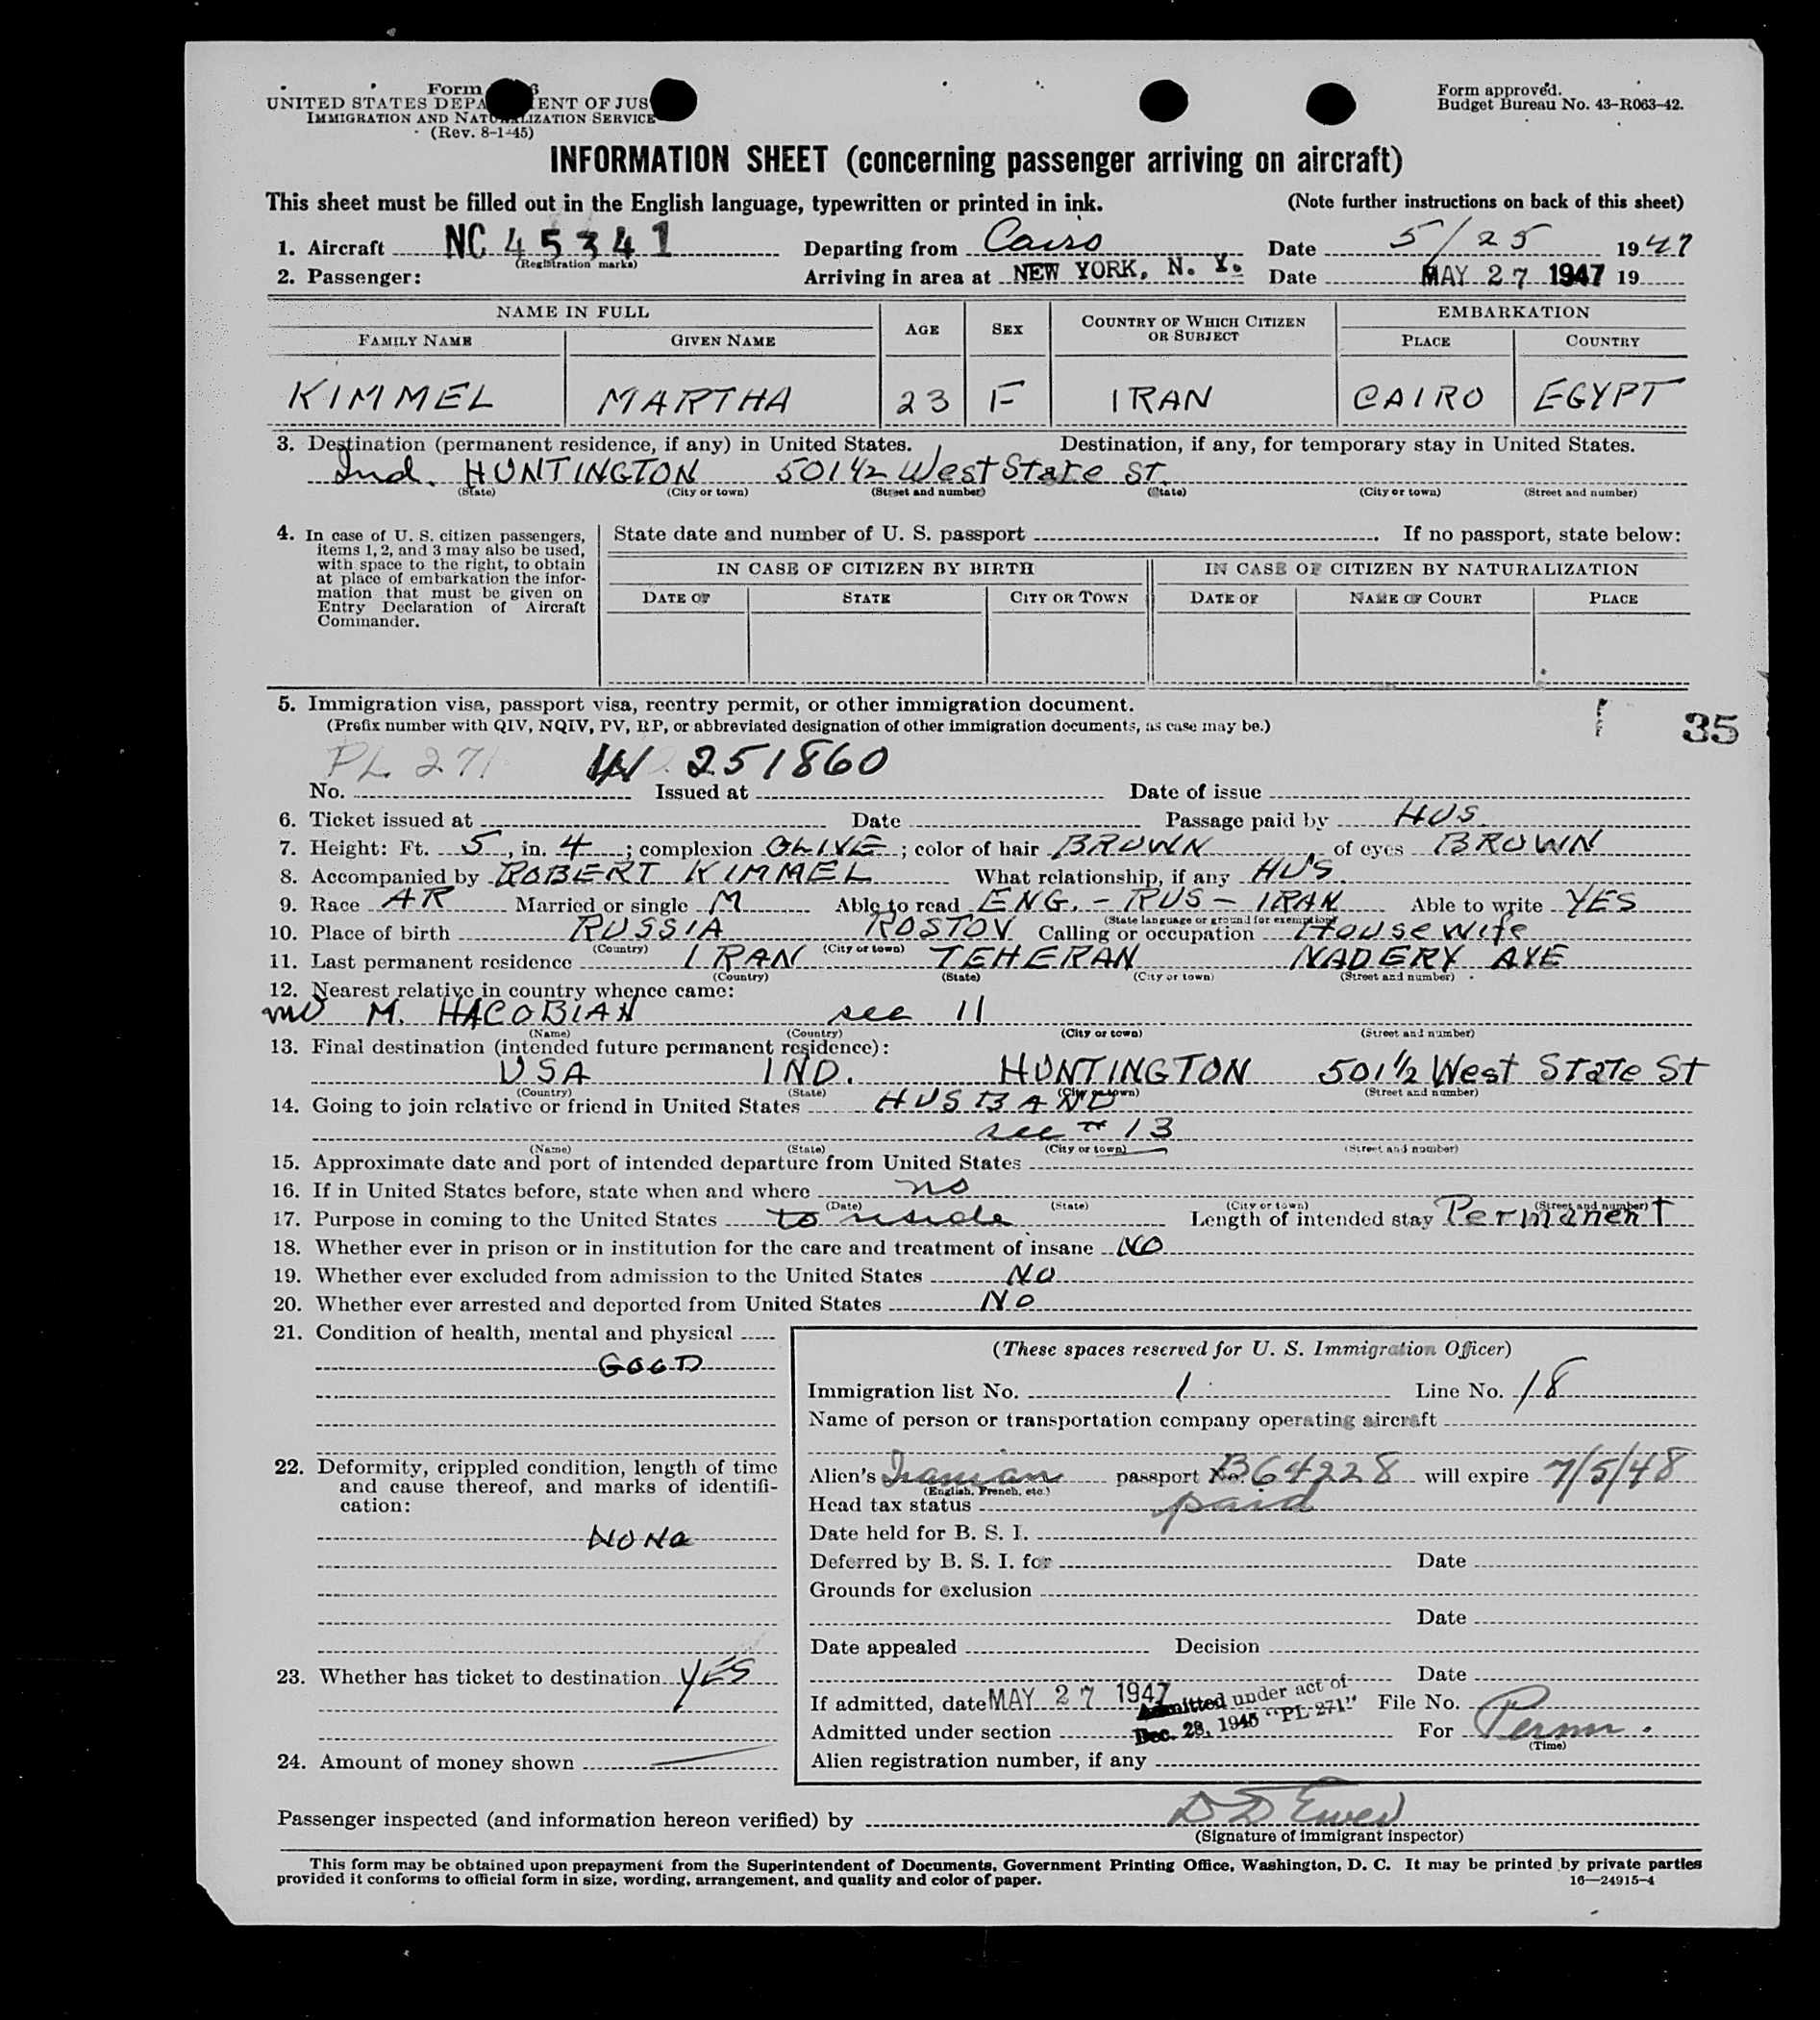 Form
UNITED STATES DEPA ENT OF JUS
IMMIGRATION AND NATURALIZATION SERVICE
(Rev. 8-1-45)
Form approved.
Budget Bureau No. 43-R063-42.
INFORMATION SHEET (concerning passenger arriving on aircraft)
This sheet must be filled out in the English language, typewritten or printed in ink. (Note further instructions on back of this sheet)
1. Aircraft NC 45341 Departing from Cairo Date 5/25 1947
(Registration marks)
2. Passenger: Arriving in area at NEW YORK, N. Y. Date MAY 27 1947 19
NAME IN FULL AGE SEX COUNTRY OF WHICH CITIZEN OR SUBJECT EMBARKATION
FAMILY NAME GIVEN NAME PLACE COUNTRY
KIMMEL MARTHA 23 F IRAN CAIRO EGYPT
3. Destination (permanent residence, if any) in United States. Destination, if any, for temporary stay in United States.
Ind. HUNTINGTON 501 1/2 West State St.
(State) (City or town) (Street and number) (State) (City or town) (Street and number)
4. In case of U. S. citizen passengers, items 1, 2, and 3 may also be used, with space to the right, to obtain at place of embarkation the information that must be given on Entry Declaration of Aircraft Commander.
State date and number of U. S. passport . If no passport, state below:
IN CASE OF CITIZEN BY BIRTH IN CASE OF CITIZEN BY NATURALIZATION
DATE OF STATE CITY OR TOWN DATE OF NAME OF COURT PLACE
5. Immigration visa, passport visa, reentry permit, or other immigration document.
(Prefix number with QIV, NQIV, PV, RP, or abbreviated designation of other immigration documents, as case may be.)
35
PL 271 251860
No. Issued at Date of issue
6. Ticket issued at Date Passage paid by HUS.
7. Height: Ft. 5, in. 4; complexion OLIVE; color of hair BROWN of eyes BROWN
8. Accompanied by ROBERT KIMMEL What relationship, if any HUS.
9. Race AR Married or single M Able to read ENG. - RUS - IRAN Able to write YES
(State language or ground for exemption)
10. Place of birth RUSSIA ROSTOV Calling or occupation Housewife
(Country) (City or town)
11. Last permanent residence IRAN TEHERAN NADERY AVE
(Country) (State) (City or town) (Street and number)
12. Nearest relative in country whence came:
M. HACOBIAN see 11
(Name) (Country) (City or town) (Street and number)
13. Final destination (intended future permanent residence):
USA IND. HUNTINGTON 501 1/2 West State St
(Country) (State) (City or town) (Street and number)
14. Going to join relative or friend in United States HUSBAND
see # 13
(Name) (State) (City or town) (Street and number)
15. Approximate date and port of intended departure from United States
16. If in United States before, state when and where no
(Date) (State) (City or town) (Street and number)
17. Purpose in coming to the United States to reside Length of intended stay Permanent
18. Whether ever in prison or in institution for the care and treatment of insane NO
19. Whether ever excluded from admission to the United States NO
20. Whether ever arrested and deported from United States NO
21. Condition of health, mental and physical
GOOD
22. Deformity, crippled condition, length of time and cause thereof, and marks of identification:
NONe
23. Whether has ticket to destination YES
24. Amount of money shown —
(These spaces reserved for U. S. Immigration Officer)
Immigration list No. 1 Line No. 18
Name of person or transportation company operating aircraft
Alien's Iranian passport No. B64228 will expire 7/5/48
(English, French, etc.)
Head tax status paid
Date held for B. S. I.
Deferred by B. S. I. for Date
Grounds for exclusion
Date
Date appealed Decision
Date
If admitted, date MAY 27 1947 File No.
Admitted under act of
Dec. 28, 1945 "PL 271"
Admitted under section For Perm.
(Time)
Alien registration number, if any
Passenger inspected (and information hereon verified) by D D Ewen
(Signature of immigrant inspector)
This form may be obtained upon prepayment from the Superintendent of Documents, Government Printing Office, Washington, D. C. It may be printed by private parties
provided it conforms to official form in size, wording, arrangement, and quality and color of paper. 16—24915-4